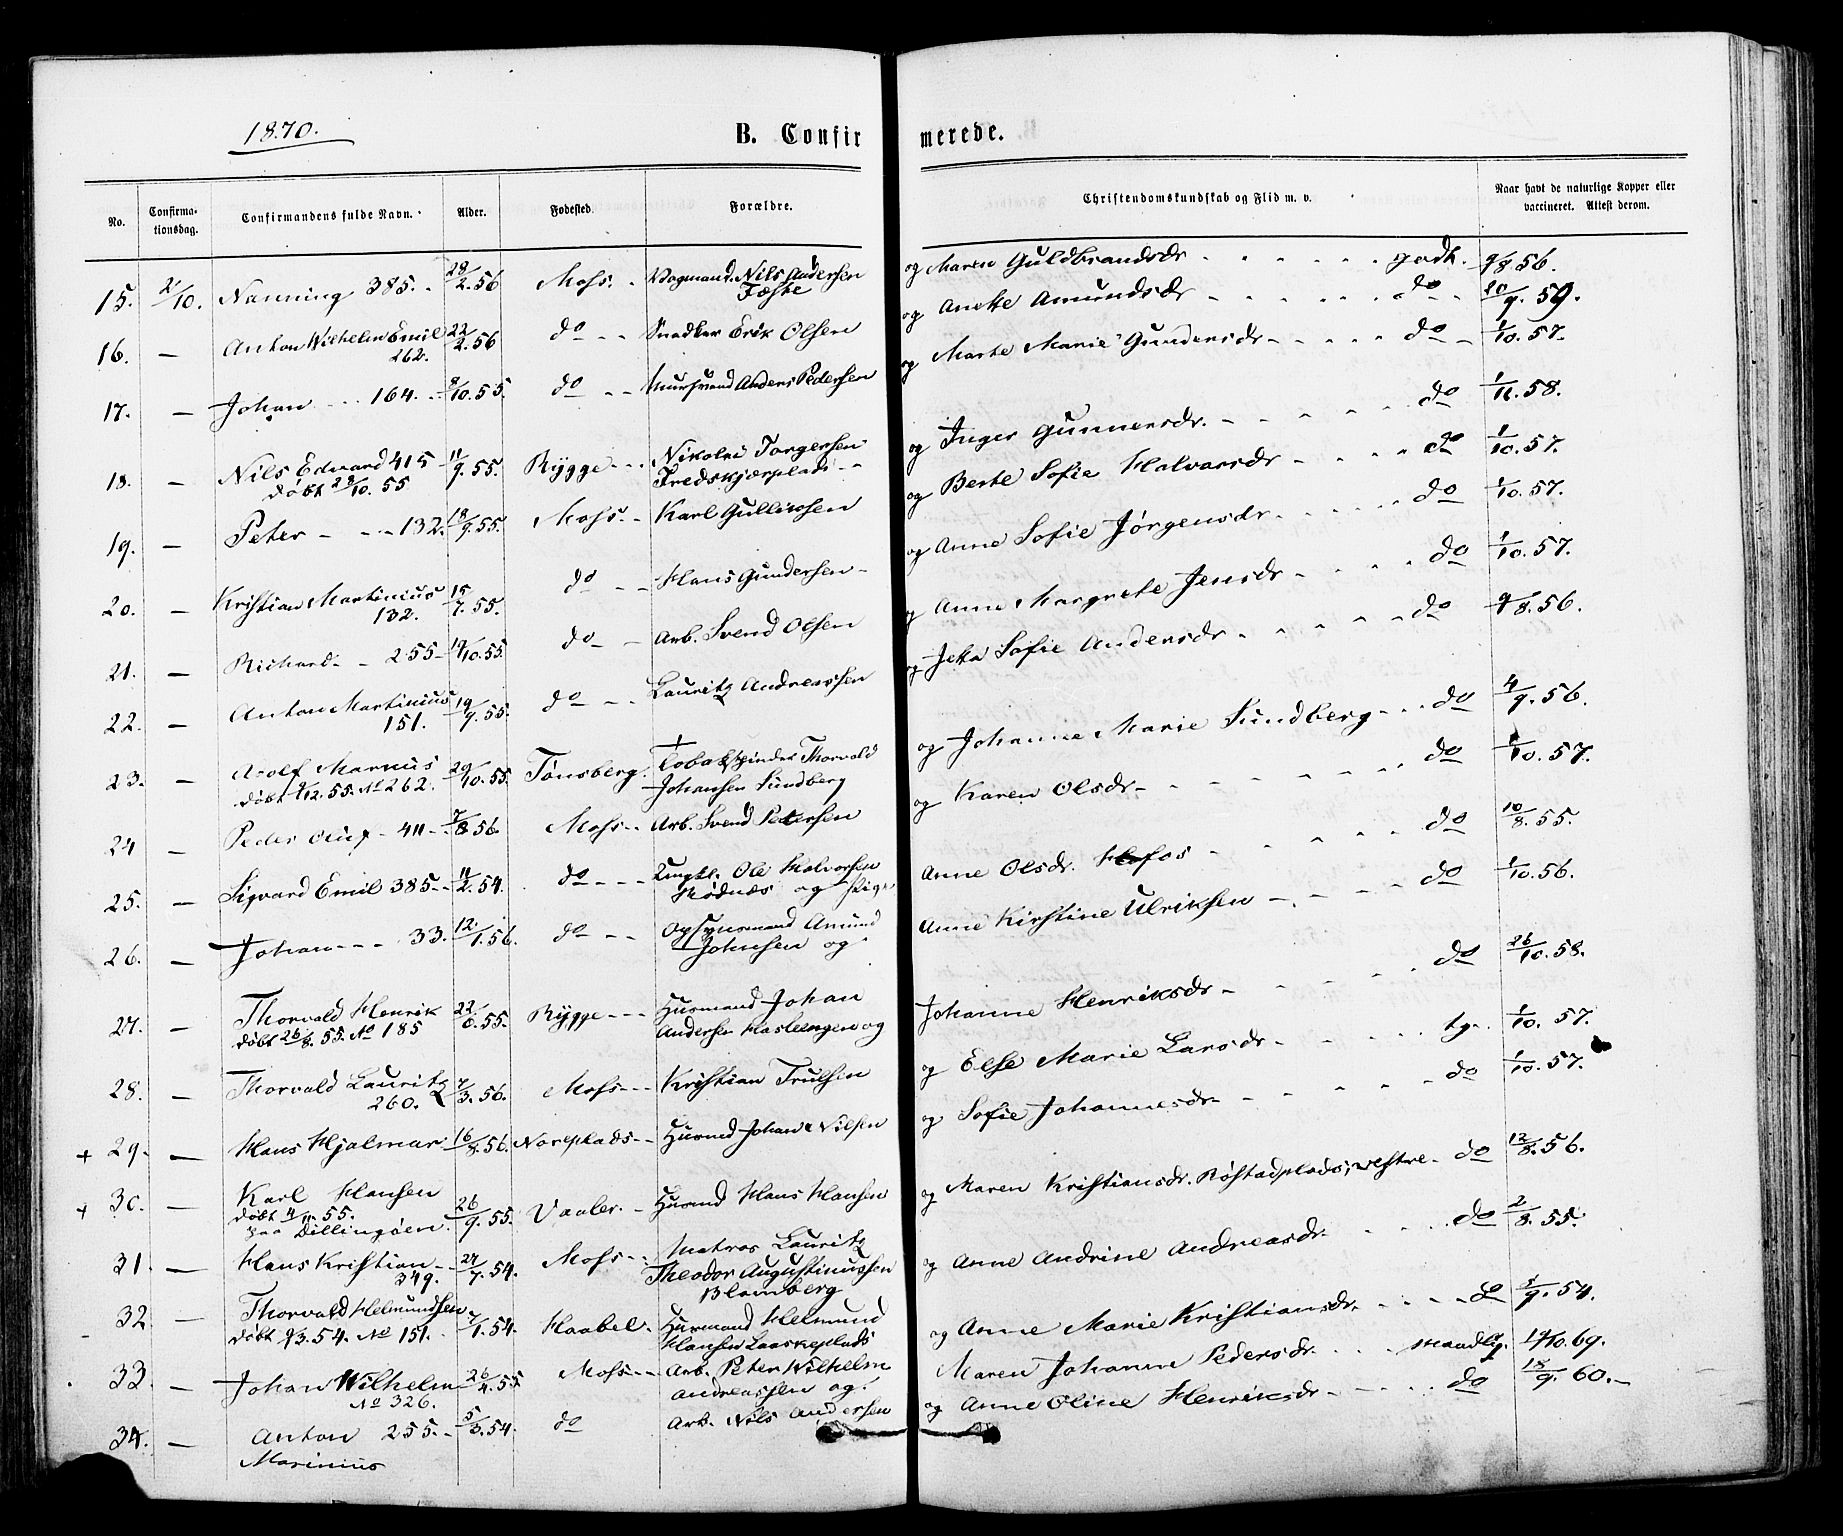 1870.
B. Confir
merede.
No.
Confirma-
tionsdag.
Confirmandens fulde Navn.
Alder.
Fødested.
Forældre.
Christendomskundskab og Flid m. v.
Naar havt de naturlige Kopper eller
vaccineret. Attest derom.
15. 2/10. Nanning 385. 28/2.56 Moss. Vognmand Nils Andersen
Tæste og Maren Guldbrandsdr godt. 9/8 56.
16. — Anton Wilhelm Emil 22/2.56 do Snedker Erik Olsen og Anette Amundsdr do 20/9. 59.
262.
17. — Johan 164. 8/10.55. do Anders Pedersen og Marte Marie Gundersdr do 1/10.57.
18. — Nils Edvard 415 11/9.55. Rygge Nikolai Torgersen og Inger Gunnersdr. do 1/11.58.
døbt 28/10.55 Fredskjærplads
19. — Peter 132. 18/9.55. Moss. Karl Gulliksen og Berte Sofie Halvorsdr do 1/10.57.
20. — Kristian Martinius 15/7.55. do Hans Gundersen og Anne Sofie Jørgensdr do 1/10.57.
132.
21. — Richard 255 14/10.55. do Arb. Svend Olsen og Anne Margrete Jensdr do 1/10.57.
22. — Anton Martinius 19/9.55. do Lauritz Andreassen og Sofie Andersdr do 9/8.56.
151.
23. — Adolf Marnus 29/10.55. Tønsberg. Tobakspinder Thorvald
døbt 9/12.55. No 262. Johansen Sundberg og Johanne Marie Sundberg do 4/9.56.
24 — Peder 411 7/8 56. Moss Arb. Svend Petersen og Karen Olsdr do 1/10.57.
25. — Sigvard Emil 385 11/2.54. do Ole Halvorsen
Rødnæs og Anne Olsdr. do 10/8.55.
26. — Johan 33. 12/1.56. do Opsynsmand Amund
Johnsen og Anne Kirstine Ulriksen do 1/10.56.
27. — Thorvald Henrik 22/6.55. Rygge Husmand Johan
døbt 26/8.55. No 185 Andersen og Johanne Henriksdr do 26/10.58.
28. — Thorvald Lauritz 7/3.56. Moss Kristian Trulsen og Else Marie Larsdr tg. 1/10. 57.
260.
+ 29. — Hans Hjalmar 16/8.56. Noreplads Husmd Johan Nilsen og Sofie Johannesdr do 1/10.57.
+ 30. — Karl Hansen 26/9.55. Vaaler. Husmd Hans Hansen og Maren Kristiansdr. Røstadplads, vestre do 12/8.56.
døbt 4/11.55.
paa Dillingøen.
31. — Hans Kristian 27/7.54. Moss Matros Lauritz
349. Theodor Augustinussen
Blomberg og Anne Andrine Andreasdr. do 2/8.55.
32. — Thorvald Helmundsen 7/1.54. Haabel. Husmand Helmund
døbt 9/3.54. No 151. Hansen og Anne Marie Kristiansdr. do 5/9.54.
33. — Johan Wilhelm 26/4.55 Moss Arb. Peter Wilhelm
No 326. Andreassen og Maren Johanne Pedersdr. maadlig. 14/10.69.
34. — Anton 255. 5/3.54. do Arb. Nils Andersen og Anne Oline Henriksdr do 18/9.60.
Marinius